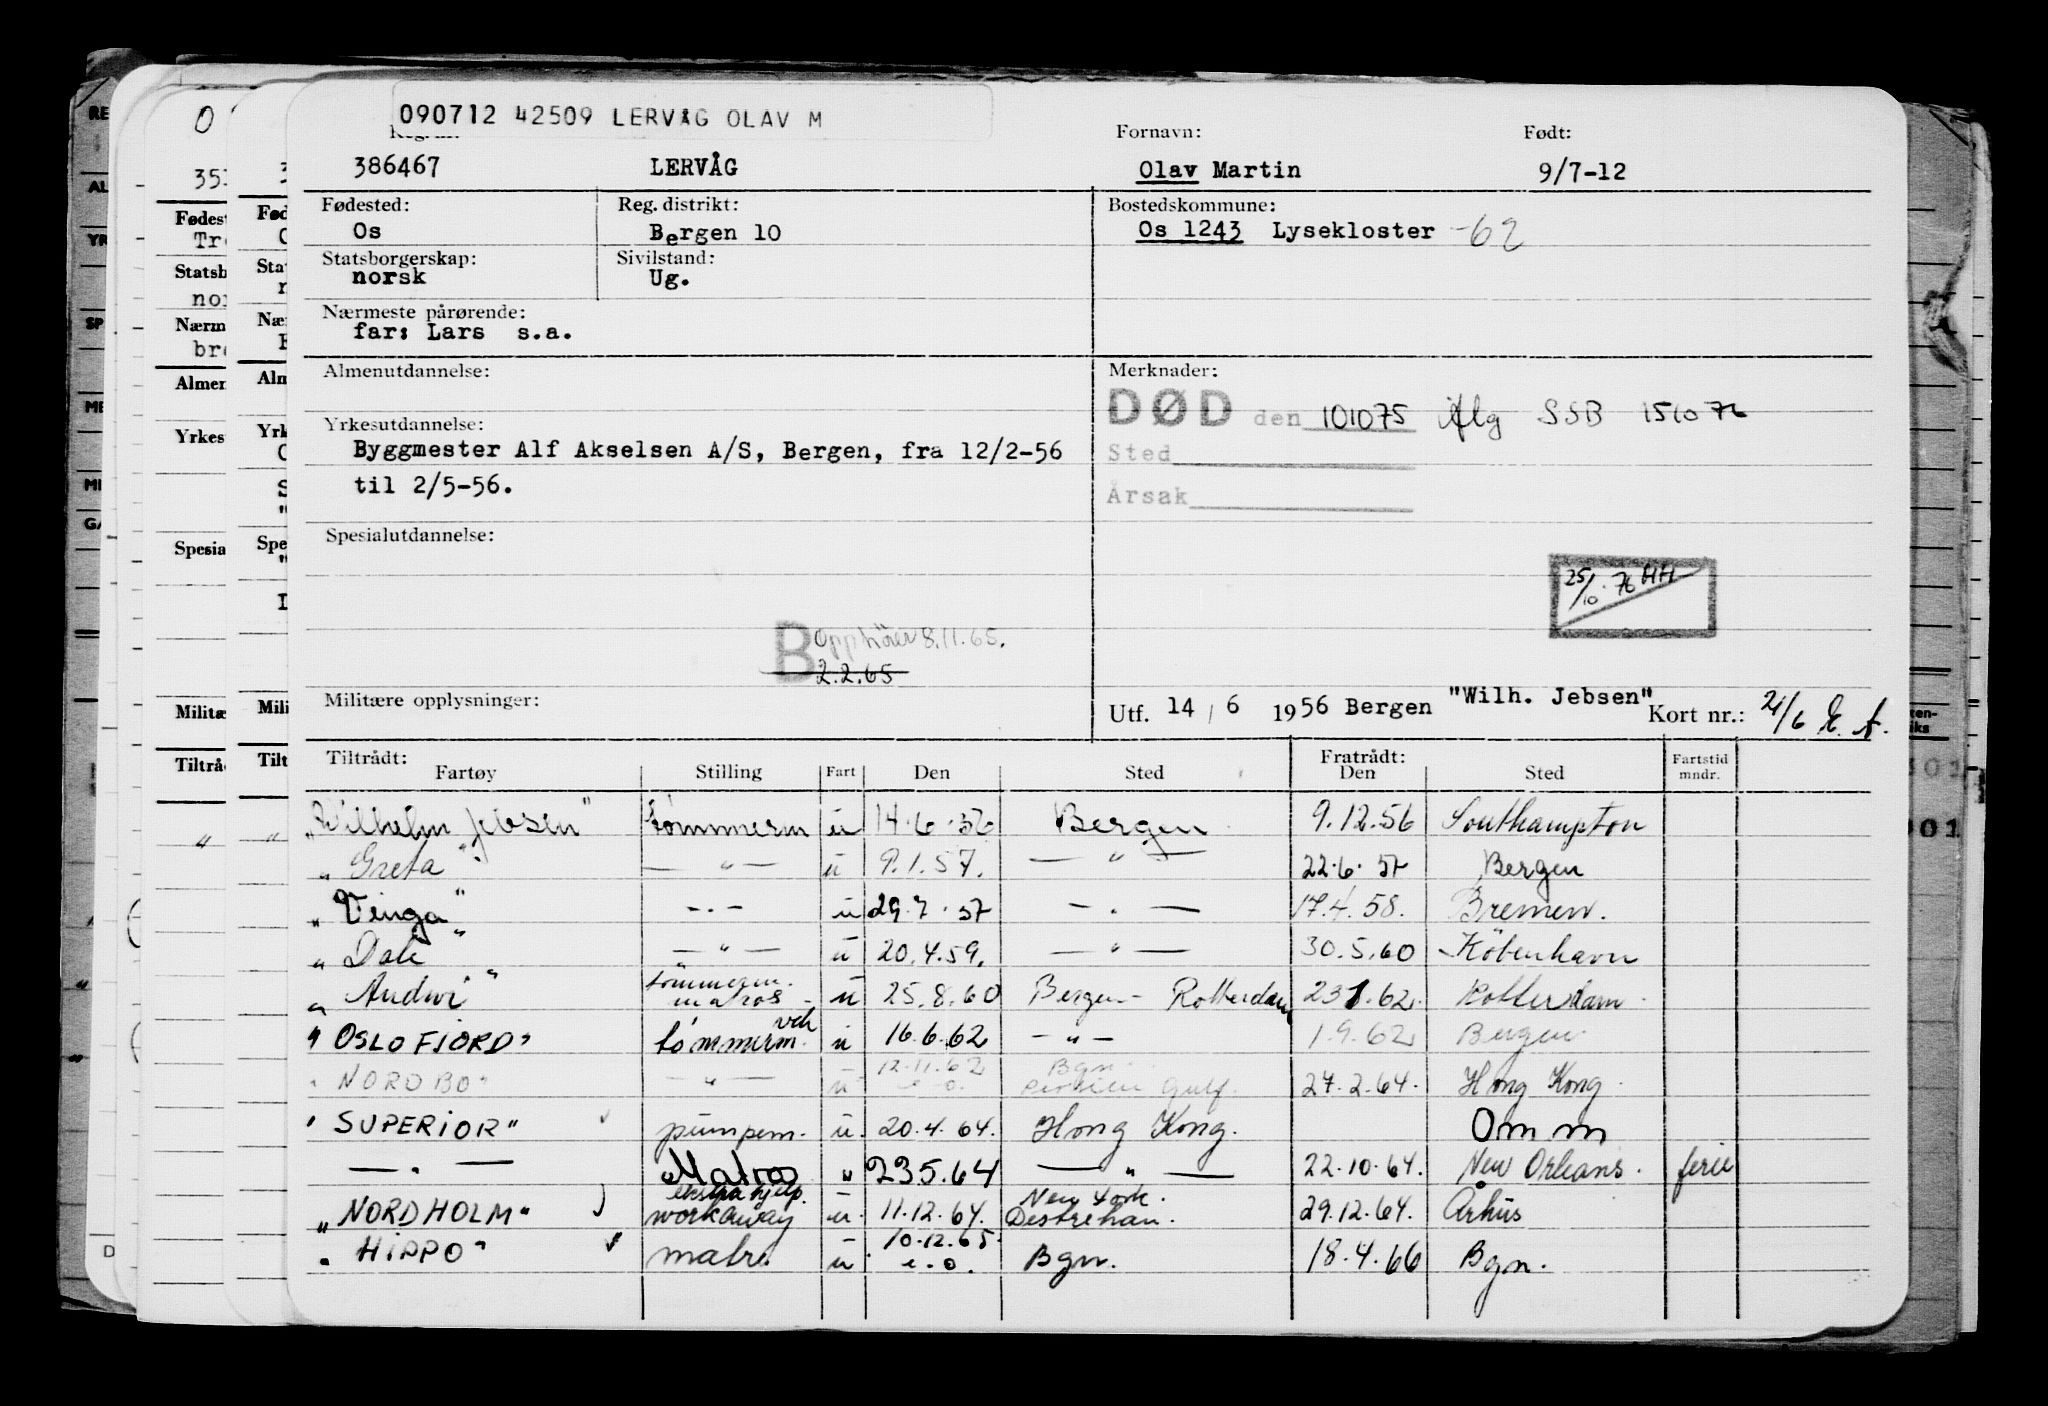 090712 42509 LERVÅG OLAV M
Fornavn: Født:
386467 LERVÅG Olav Martin 9/7-12
Fødested: Reg. distrikt: Bostedskommune:
Os Bergen 10 Os 1243 Lysekloster -62
Statsborgerskap: Sivilstand:
norsk Ug.
Nærmeste pårørende:
far: Lars s.a.
Almenutdannelse: Merknader:
DØD den 101075 SSB 151076
Yrkesutdannelse:
Byggmester Alf Akselsen A/S, Bergen, fra 12/2-56
Sted
til 2/5-56.
Årsak
Spesialutdannelse:
25/10.76 HH
B Opphører 8.11.65.
2.2.65
Militære opplysninger:
Utf. 14/6 1956 Bergen "Wilh. Jebsen" Kort nr.: 21/6 E. A.
Tiltrådt: Fratrådt: Fartstid
Fartøy Stilling Fart Den Sted Den Sted mndr.
"Wilhelm Jebsen" tømmerm u 14.6.56 Bergen 9.12.56 Southampton
"Greta" — " — u 9.1.57. — " — 22.6.57 Bergen
"Vinga" — " — u 29.7.57 — " — 17.4.58. Bremen.
"Dale" — " — u 20.4.59. — " — 30.5.60 København
"Audwi" tømmerm. matros u 25.8.60 Bergen - Rotterdam 23.1.62. Rotterdam
"OSLOFJORD" tømmerm. u 16.6.62 — " — 1.9.62 Bergen
"NORDBO" — " — u 12.11.62 e.o. Bgn. Persien Gulf. 27.2.64. Hong Kong
"SUPERIOR" pumpem. u. 20.4.64. Hong Kong. Omm
— " — Matros " 23.5.64 — " — 22.10.64. New Orleans. ferie
"NORDHOLM" ekstra hjelp. workaway u. 11.12.64. New York. Destrehan. 29.12.64. Århus
"HIPPO" matr. u 10.12.65 e.o. Bgn. 18.4.66 Bgn.